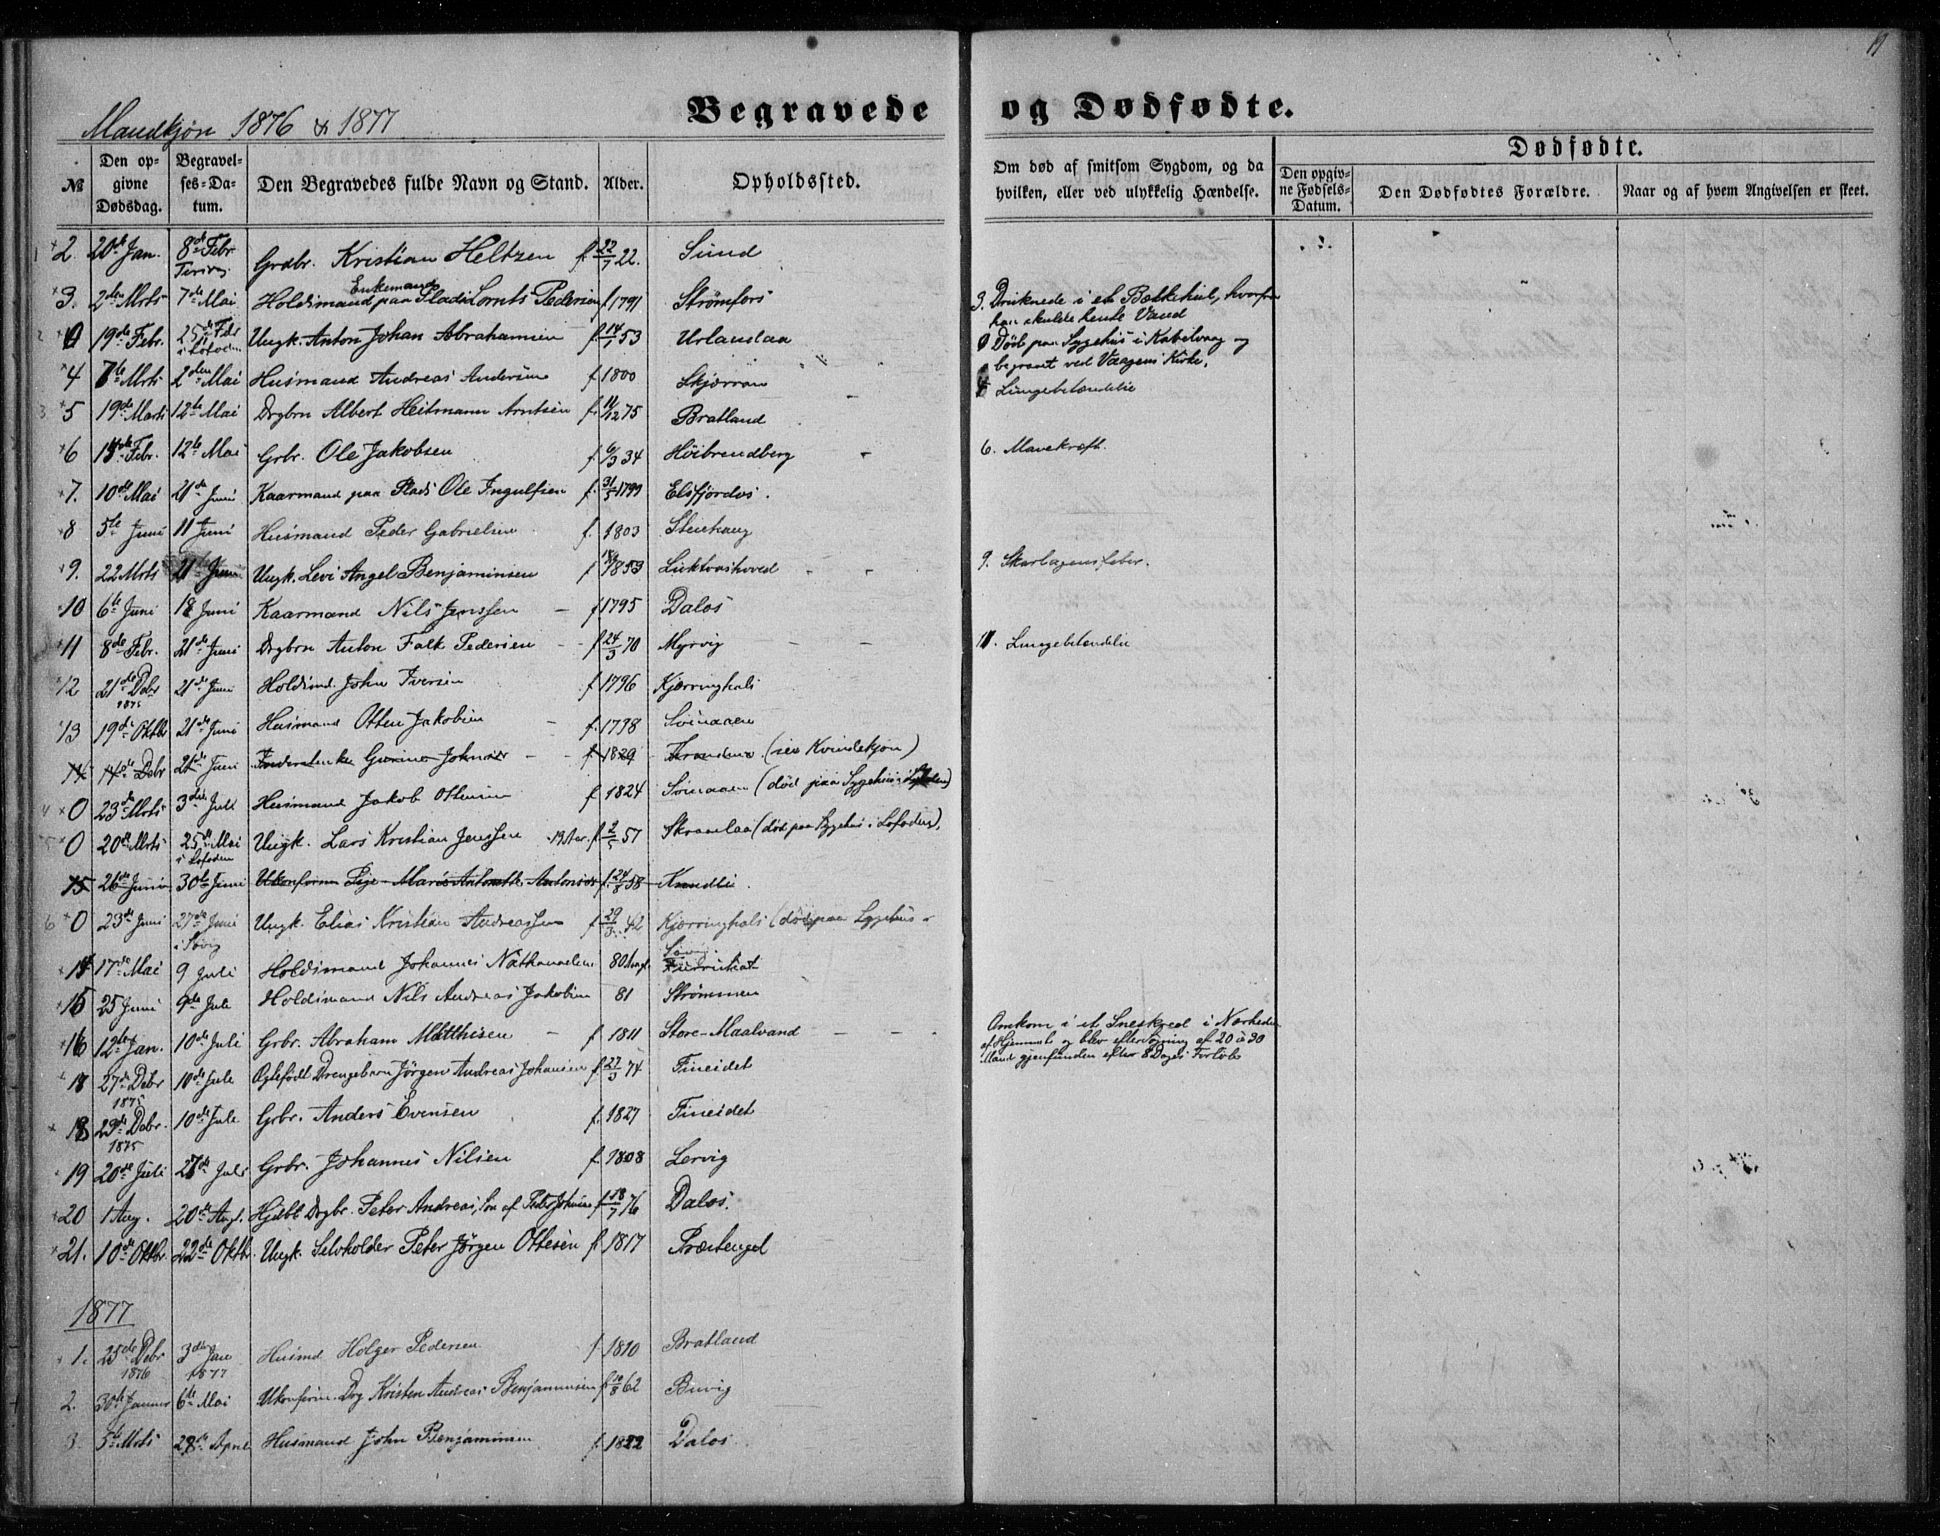 19
Mandkjøn 1876 & 1877
Begravede og Dødfødte.
№
Den opgivne Dødsdag.
Begravelses-Datum.
Den Begravedes fulde Navn og Stand.
Alder.
Opholdssted.
Om død af smitsom Sygdom, og da hvilken, eller ved ulykkelig Hændelse.
Dødfødte.
Den opgivne Fødsels-Datum.
Den Dødfødtes Forældre.
Naar og af hvem Angivelsen er skeet.
2. 20de Jan. 8de Febr Grdbr. Kristian Heltzen f. 22/7 22. Sund
3. 2den Mrts 7de Mai Holdsmand paa Plads Enkemand Lornts Pedersen f 1791 Strømfors 3. Druknede i et Bækkehul, hvorfra han skulde hente Vand
0 19de Febr. 25de Febr i Lofoden Ungk. Anton Johan Abrahamsen f. 14/1 53 Urlandaa 0 Død paa Sygehus i Kabelvaag og begravet ved Vaagens Kirke.
4 7de Mrts 2den Mai Husmand Andreas Andersen f 1800 Skjærran 4 Lungebetændelse
5 19de Marts 12te Mai Drgbrn Albert Heitmann Arntsen f. 11/12 75 Bratland
6 15de Febr. 12te Mai Grbr. Ole Jakobsen f 6/3 34 Høibrendberg 6. Mavekræft.
7. 10de Mai 21de Juni Kaarmand paa Plads Ole Ingulfsen f. 31/5 1799 Elsfjordos.
8 5te Juni 11 Juni Husmand Peder Gabrielsen f. 1803 Stenhaug
9. 22 Mrts 21 Juni Ungk. Levi Angel Benjaminsen f 1853 Luktvashoved 9. Skarlagensfeber.
10 6te Juni 18 Juni Kaarmand Nils Jenssen f 1795 Dalos
11 8de Febr. 21de Juni Drgbrn Anton Falk Pedersen f 24/3 70 Myrvig 11. Lungebetændelse
12 21de Debr 1875 21de Juni Holdsmd John Iversen f 1796 Kjærringhals
13 19de Oktbr 21de Juni Husmand Otten Jakobsen f. 1798 Svinaaen
14 14de Debr 21de Juni Gurine Johnsdr f 1829 (see Kvindekjøn)
0 23de Mrts 3die Juli Husmand Jakob Ottensen f 1824 Svinaaen (død paa Sygehus i Lofoden)
0 20de Mrts 25de Mai i Lofoden Ungk. Lars Kristian Jenssen 19 Aar. f. 2/5 57 Skranlaa (død paa Sygehus i Lofoden).
15 26de Juni 30te Juni Ukonfirm. Pige Marie Antonette Antonsdr f. 24/8 58 Kundli
0 23de Juni 27de Juni i Søvig Ungk. Elias Kristian Andreassen f 29/3 42 Kjærringhals (død paa Sygehus i Søvig.
14 17de Mai 9 Juli Holdsmand Johannes Nathanaelsen 80
15 25 Juni 9de Juli Holdsmand Nils Andreas Jakobsen 81 Strømmen
16 12te Jan. 10de Juli Grbr. Abraham Matthisen f. 1811 Store-Maalvand Omkom i et Sneskred i Nærheden af Hjemmet og blev eftersøgning af 20 à 30 Mand gjenfunden efter 8 Dages Forløb
17 27de Debr 1875 10de Juli Ægtefødt Drengebarn Jørgen Andreas Johansen f 27/3 74 Fineidet
18 29de Debr. 1875 10de Juli Grbr. Anders Evensen f. 1827 Fineidet
19 20de Juli 27de Juli Grbr. Johannes Nilsen f. 1808 Lervig
20 1 Aug. 20de Augt. Hjdbt Drgbr. Peter Andreas, Søn af Peder Johnsen f 18/7 76 Dalos.
21. 10de Oktbr. 22de Oktbr. Ungk. Selvholder Peter Jørgen Ottesen f 1817 Præstengel
1877
1. 25de Debr 1876 3die Jan 1877 Husmd Holger Pedersen f 1810 Bratland
2. 30te Januar 6te Mai Ukonfirm. Drg Kristen Andreas Benjaminsen f 10/8 62 Buvig
3. 5te Mrts 28de April Husmand John Benjaminsen f. 1822 Dalos.